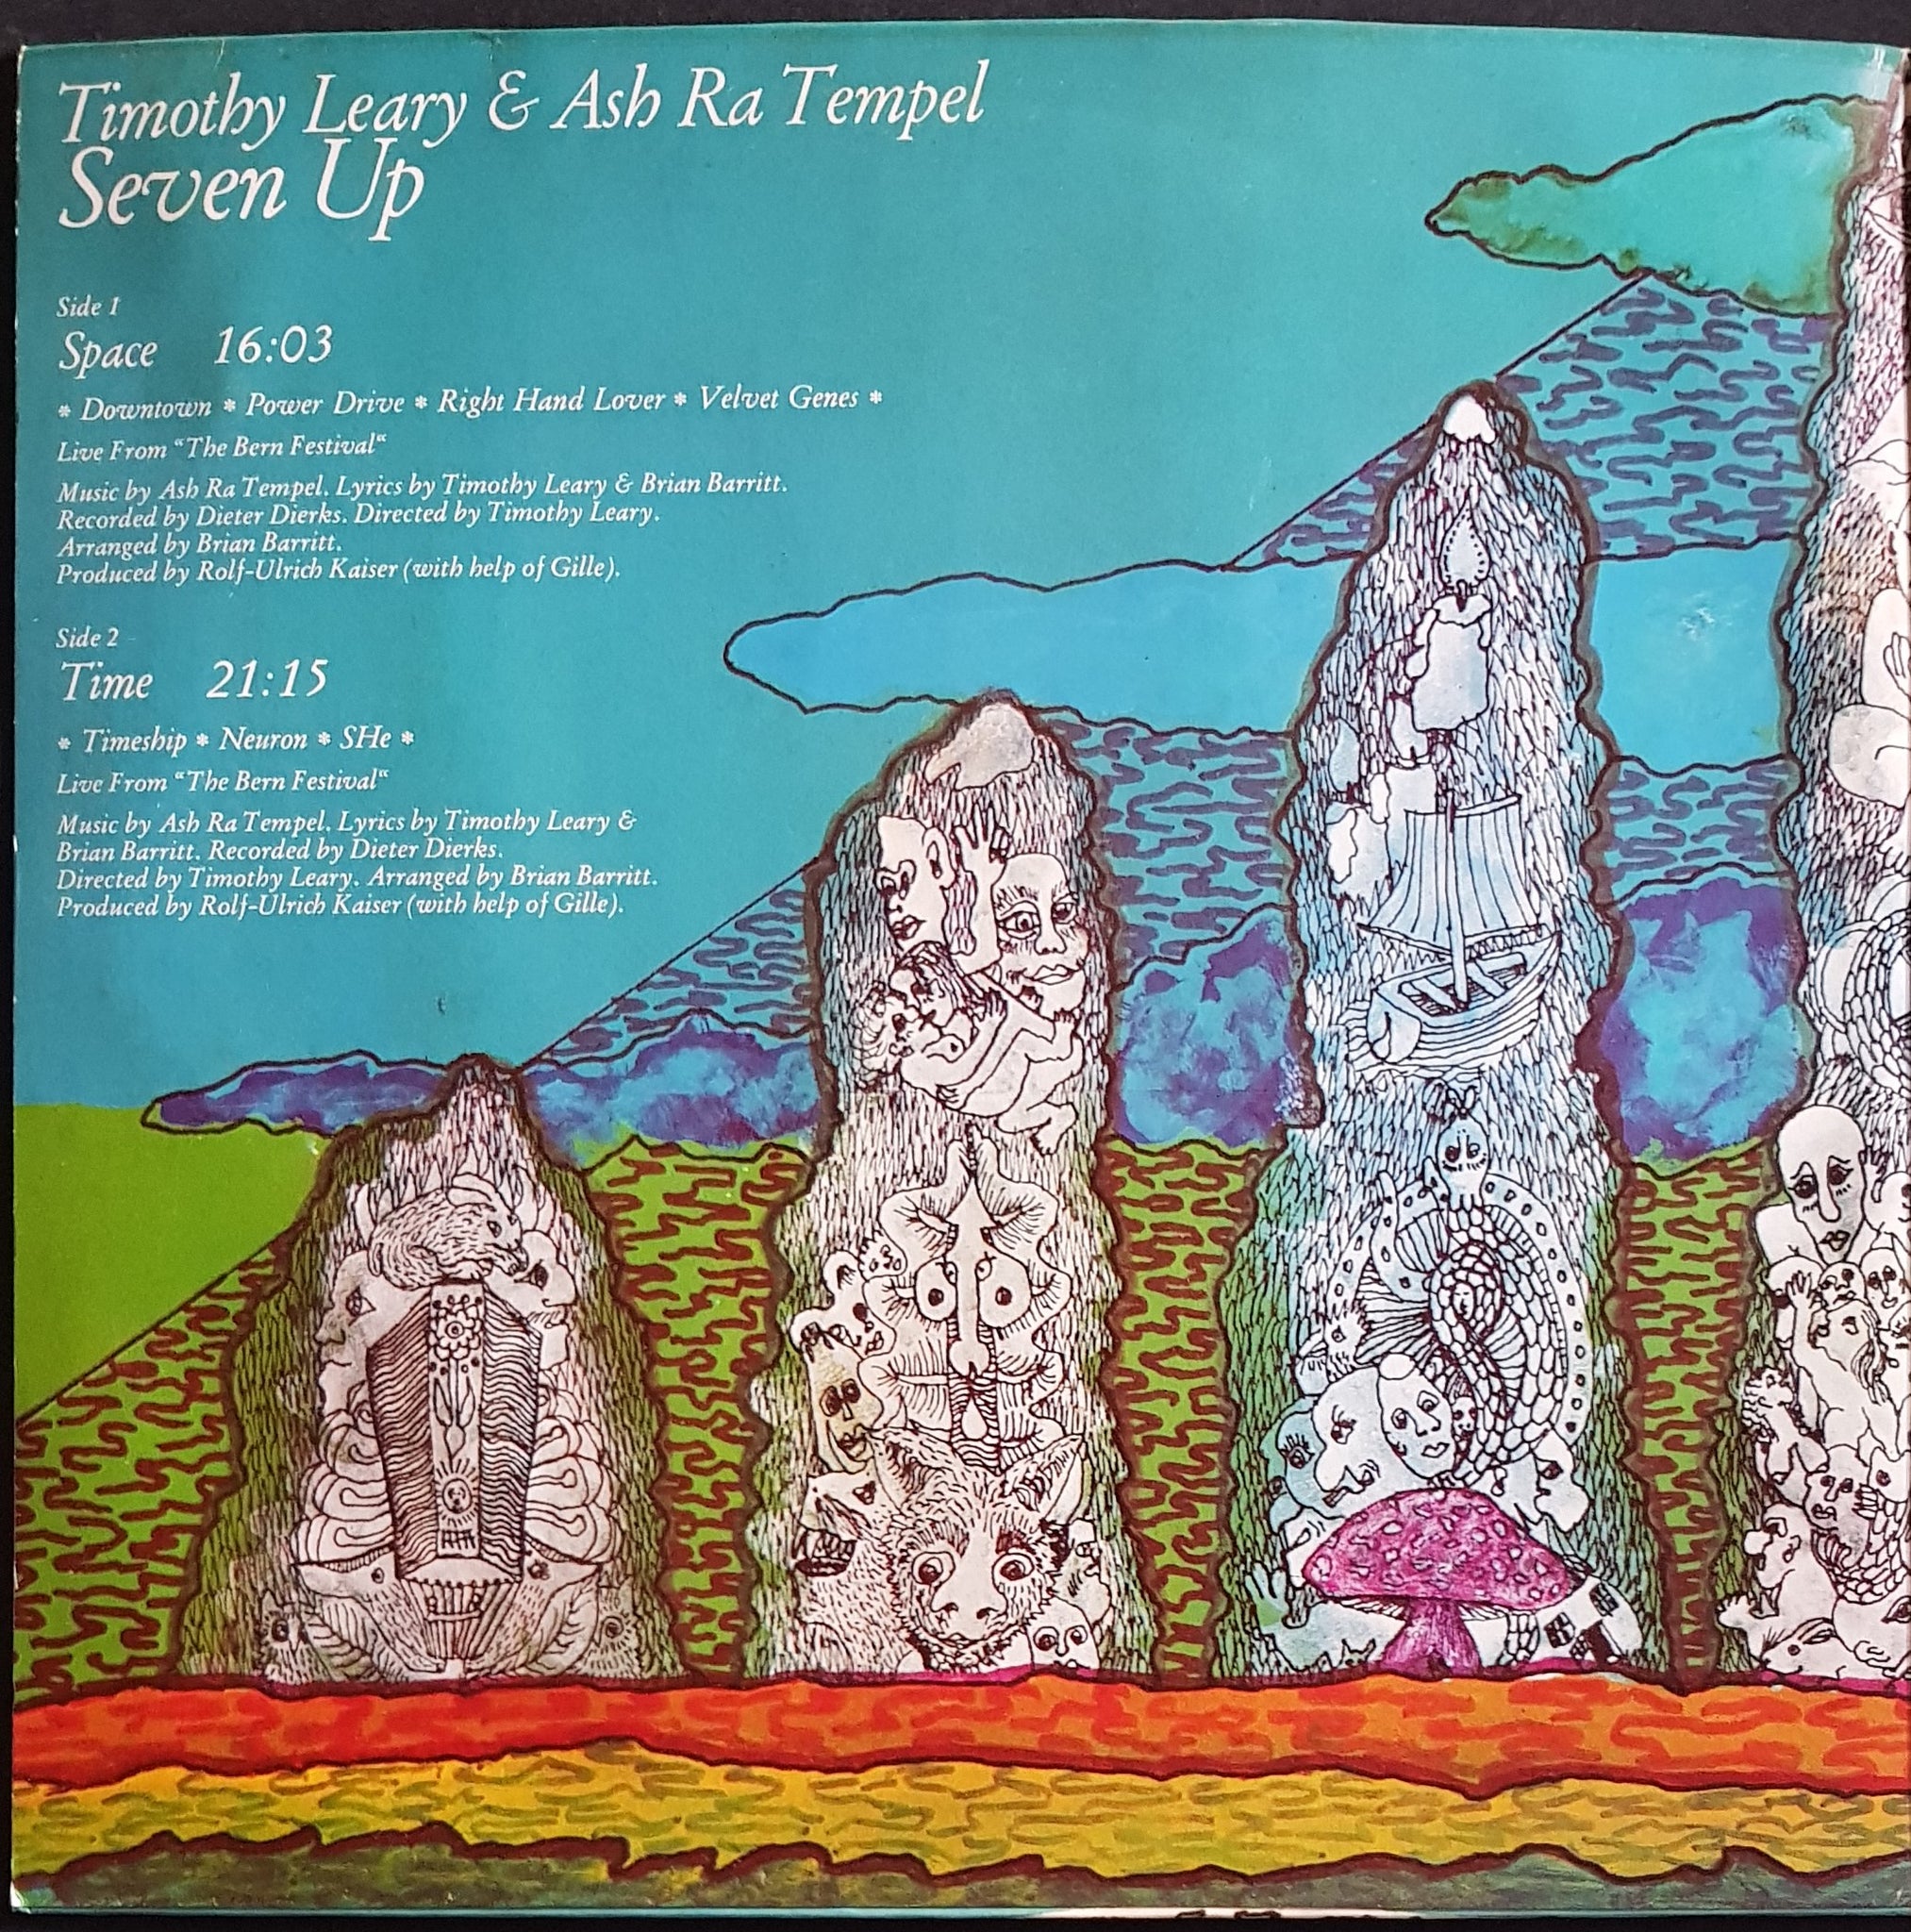 Timothy Leary & Ash Ra Tempel
Seven Up
Side 1
Space 16:03
* Downtown * Power Drive * Right Hand Lover * Velvet Genes *
Live From “The Bern Festival“
Music by Ash Ra Tempel. Lyrics by Timothy Leary & Brian Barritt.
Recorded by Dieter Dierks. Directed by Timothy Leary.
Arranged by Brian Barritt.
Produced by Rolf-Ulrich Kaiser (with help of Gille).
Side 2
Time 21:15
* Timeship * Neuron * SHe *
Live From “The Bern Festival“
Music by Ash Ra Tempel. Lyrics by Timothy Leary &
Brian Barritt. Recorded by Dieter Dierks.
Directed by Timothy Leary. Arranged by Brian Barritt.
Produced by Rolf-Ulrich Kaiser (with help of Gille).